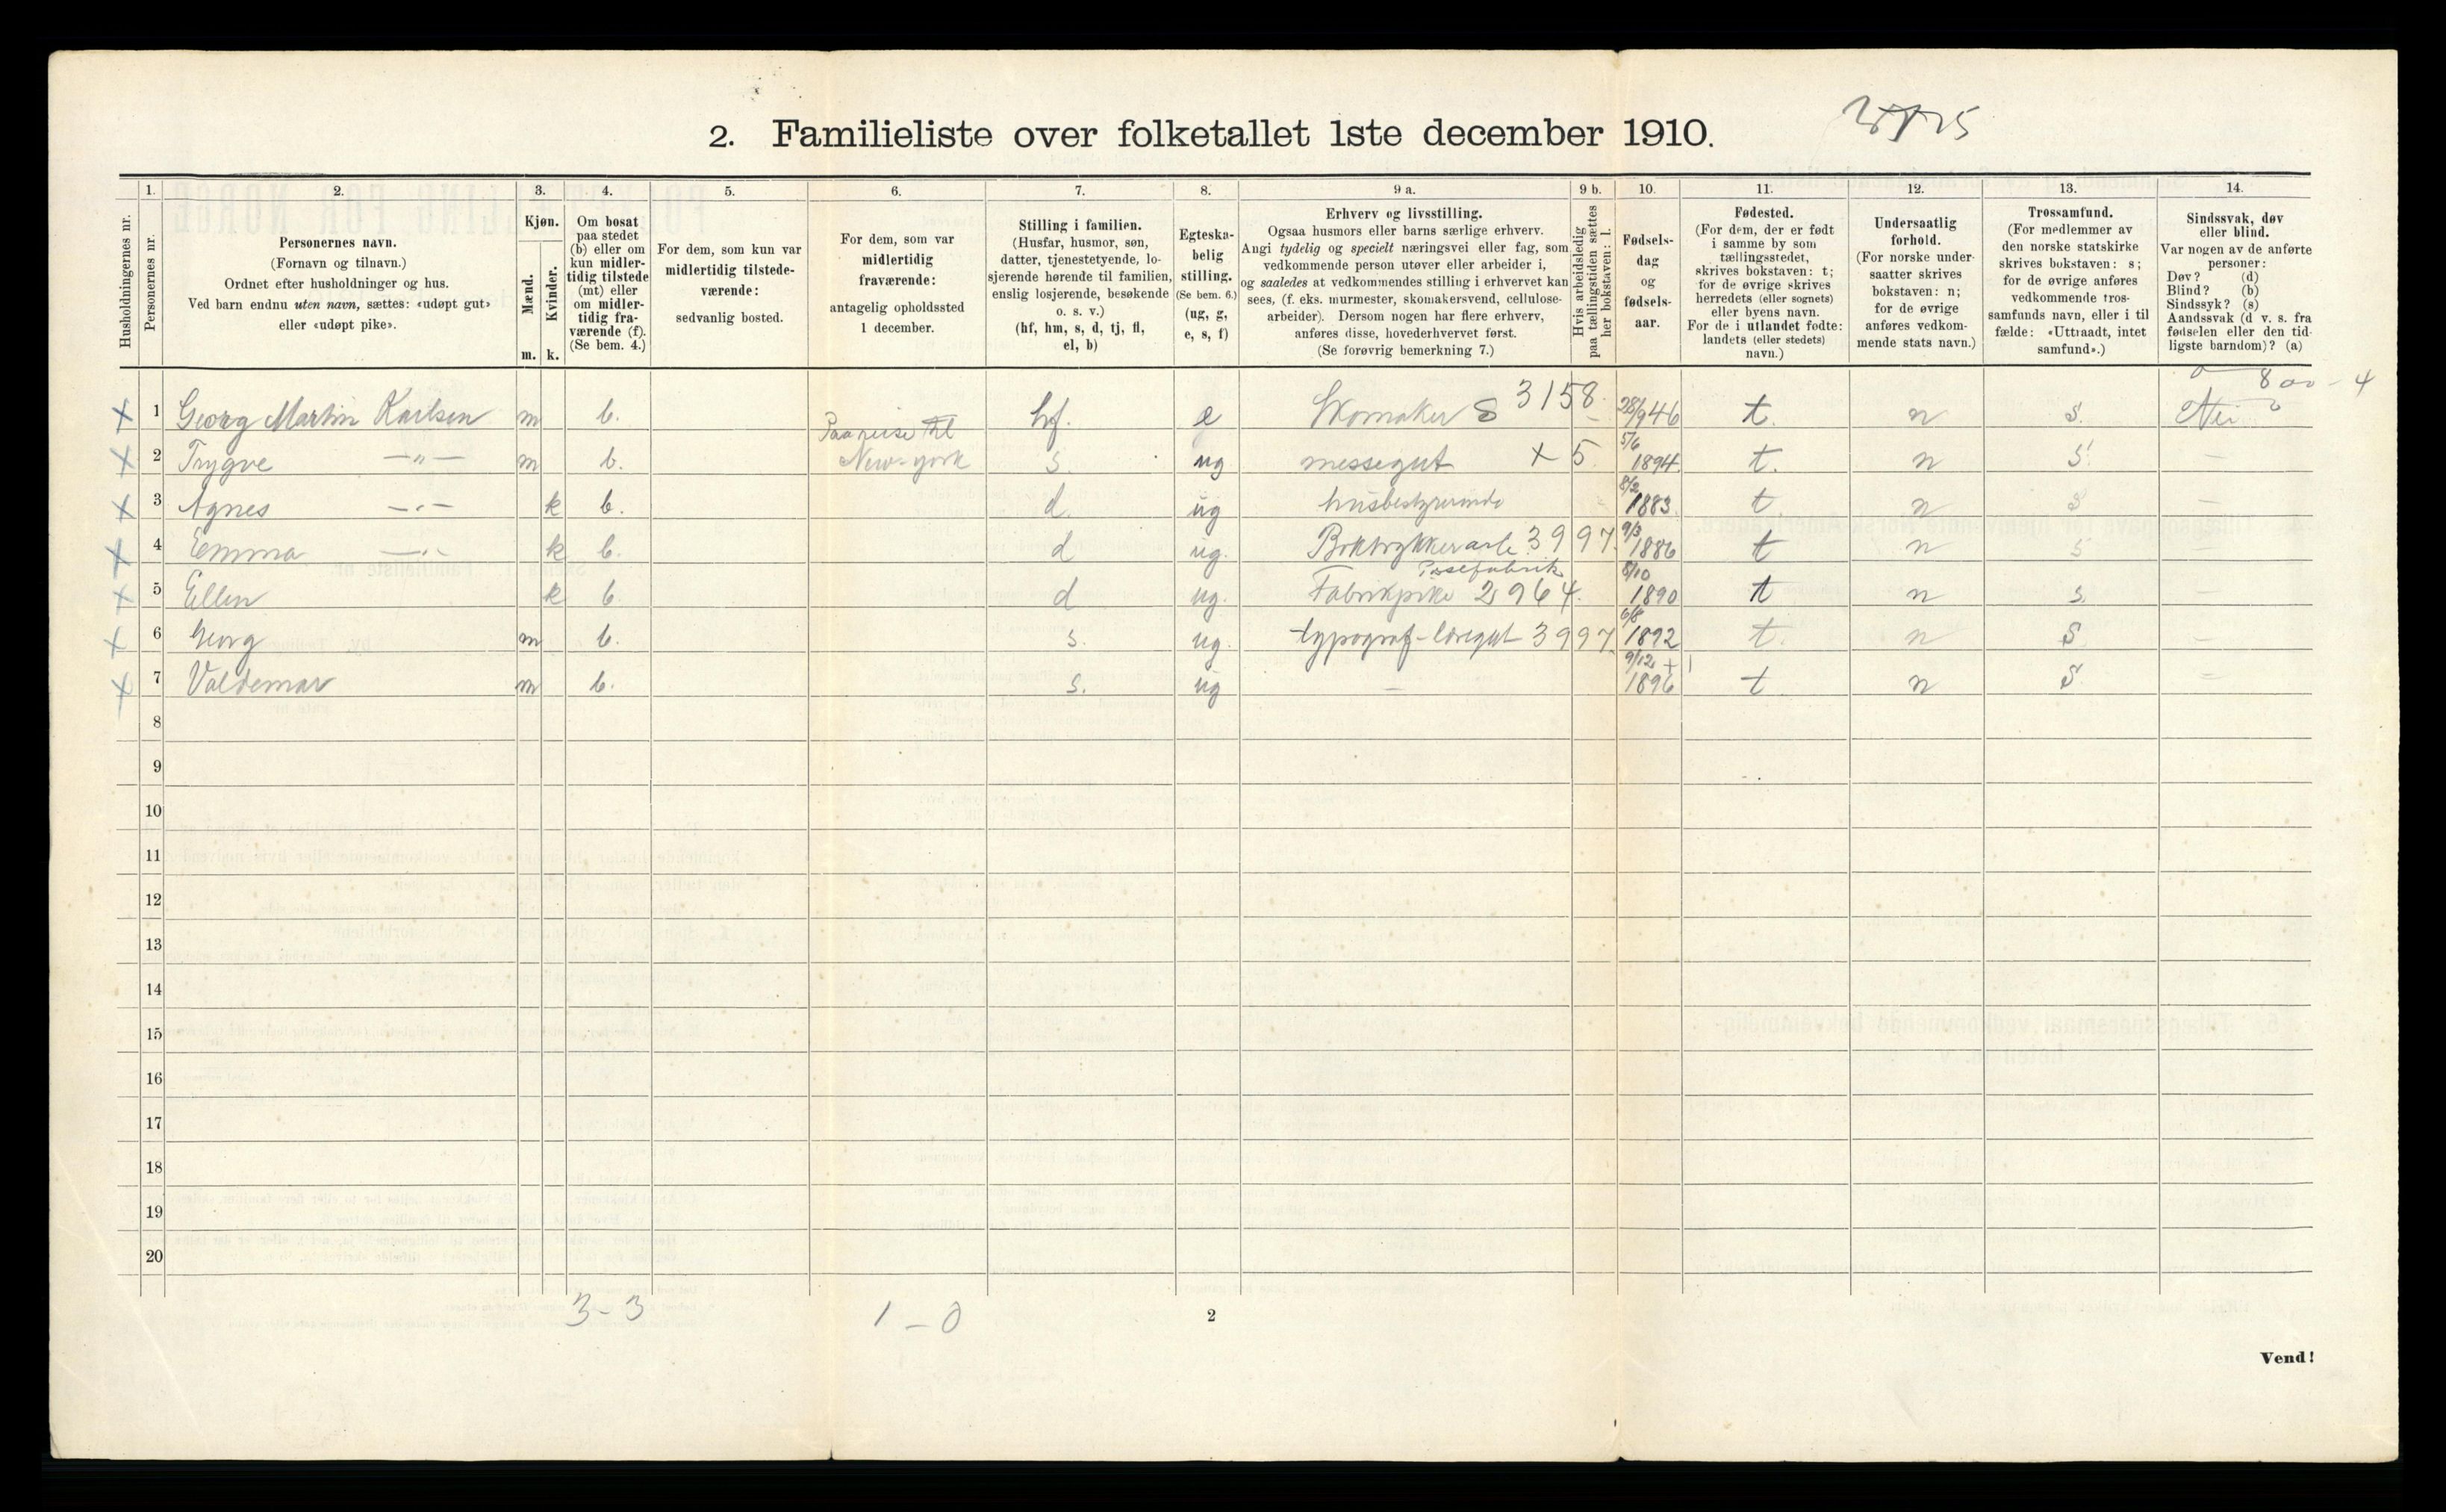 2. Familieliste over folketallet 1ste december 1910.
1. 2. 3. 4. 5. 6. 7. 8. 9 a. 9 b. 10. 11. 12. 13. 14.
Husholdningernes nr.
Personernes nr.
Personernes navn.
(Fornavn og tilnavn.)
Ordnet efter husholdninger og hus.
Ved barn endnu uten navn, sættes: «udøpt gut»
eller «udøpt pike».
Kjøn.
Mænd.
Kvinder.
m. k.
Om bosat
paa stedet
(b) eller om
kun midler-
tidig tilstede
(mt) eller
om midler-
tidig fra-
værende (f).
(Se bem. 4.)
For dem, som kun var
midlertidig tilstede-
værende:
sedvanlig bosted.
For dem, som var
midlertidig
fraværende:
antagelig opholdssted
1 december.
Stilling i familien.
(Husfar, husmor, søn,
datter, tjenestetyende, lo-
sjerende hørende til familien,
enslig losjerende, besøkende
o. s. v.)
(hf, hm, s, d, tj, fl,
el, b)
Egteska-
belig
stilling.
(Se bem. 6.)
(ug, g,
e, s, f)
Erhverv og livsstilling.
Ogsaa husmors eller barns særlige erhverv.
Angi tydelig og specielt næringsvei eller fag, som
vedkommende person utøver eller arbeider i,
og saaledes at vedkommendes stilling i erhvervet kan
sees, (f. eks. murmester, skomakersvend, cellulose-
arbeider). Dersom nogen har flere erhverv,
anføres disse, hovederhvervet først.
(Se forøvrig bemerkning 7.)
Hvis arbeidsledig
paa tællingstiden sættes
her bokstaven: l.
Fødsels-
dag
og
fødsels-
aar.
Fødested.
(For dem, der er født
i samme by som
tællingsstedet,
skrives bokstaven: t;
for de øvrige skrives
herredets (eller sognets)
eller byens navn.
For de i utlandet fødte:
landets (eller stedets)
navn.)
Undersaatlig
forhold.
(For norske under-
saatter skrives
bokstaven: n;
for de øvrige
anføres vedkom-
mende stats navn.)
Trossamfund.
(For medlemmer av
den norske statskirke
skrives bokstaven: s;
for de øvrige anføres
vedkommende tros-
samfunds navn, eller i til
fælde: «Uttraadt, intet
samfund».)
Sindssvak, døv
eller blind.
Var nogen av de anførte
personer:
Døv? (d)
Blind? (b)
Sindssyk? (s)
Aandssvak (d v. s. fra
fødselen eller den tid-
ligste barndom)? (a)
800 - 4
x 1 Georg Martin Karlsen m b. hf. e Skomaker S 3158 - 28/9 46 t. n s. Nei
Paa reise til
x 2 Trygve —„— m b. New-york s ug messegut x 5 5/6 1894. t. n s. —
x 3 Agnes —„— k b. d ug husbestyrerinde 8/2 1883. t n s —
x 4 Emma —„— k b. d ug. Boktrykkerarb. 3997. 9/3 1886 t n s —
Poselfabrik
x 5 Ellen k b. d ug. Fabrikpike 2964. 8/10 1890 t n s. —
x 6 Georg m b. s. ug. typograf-læregut 3997. 6/8 1892 t. n s —
x 7 Valdemar m b. s. ug — 9/12 1896 t n s —
8
9
10
11
12
13
14
15
16
17
18
19
20
3 - 3 1 - 0
2
Vend!